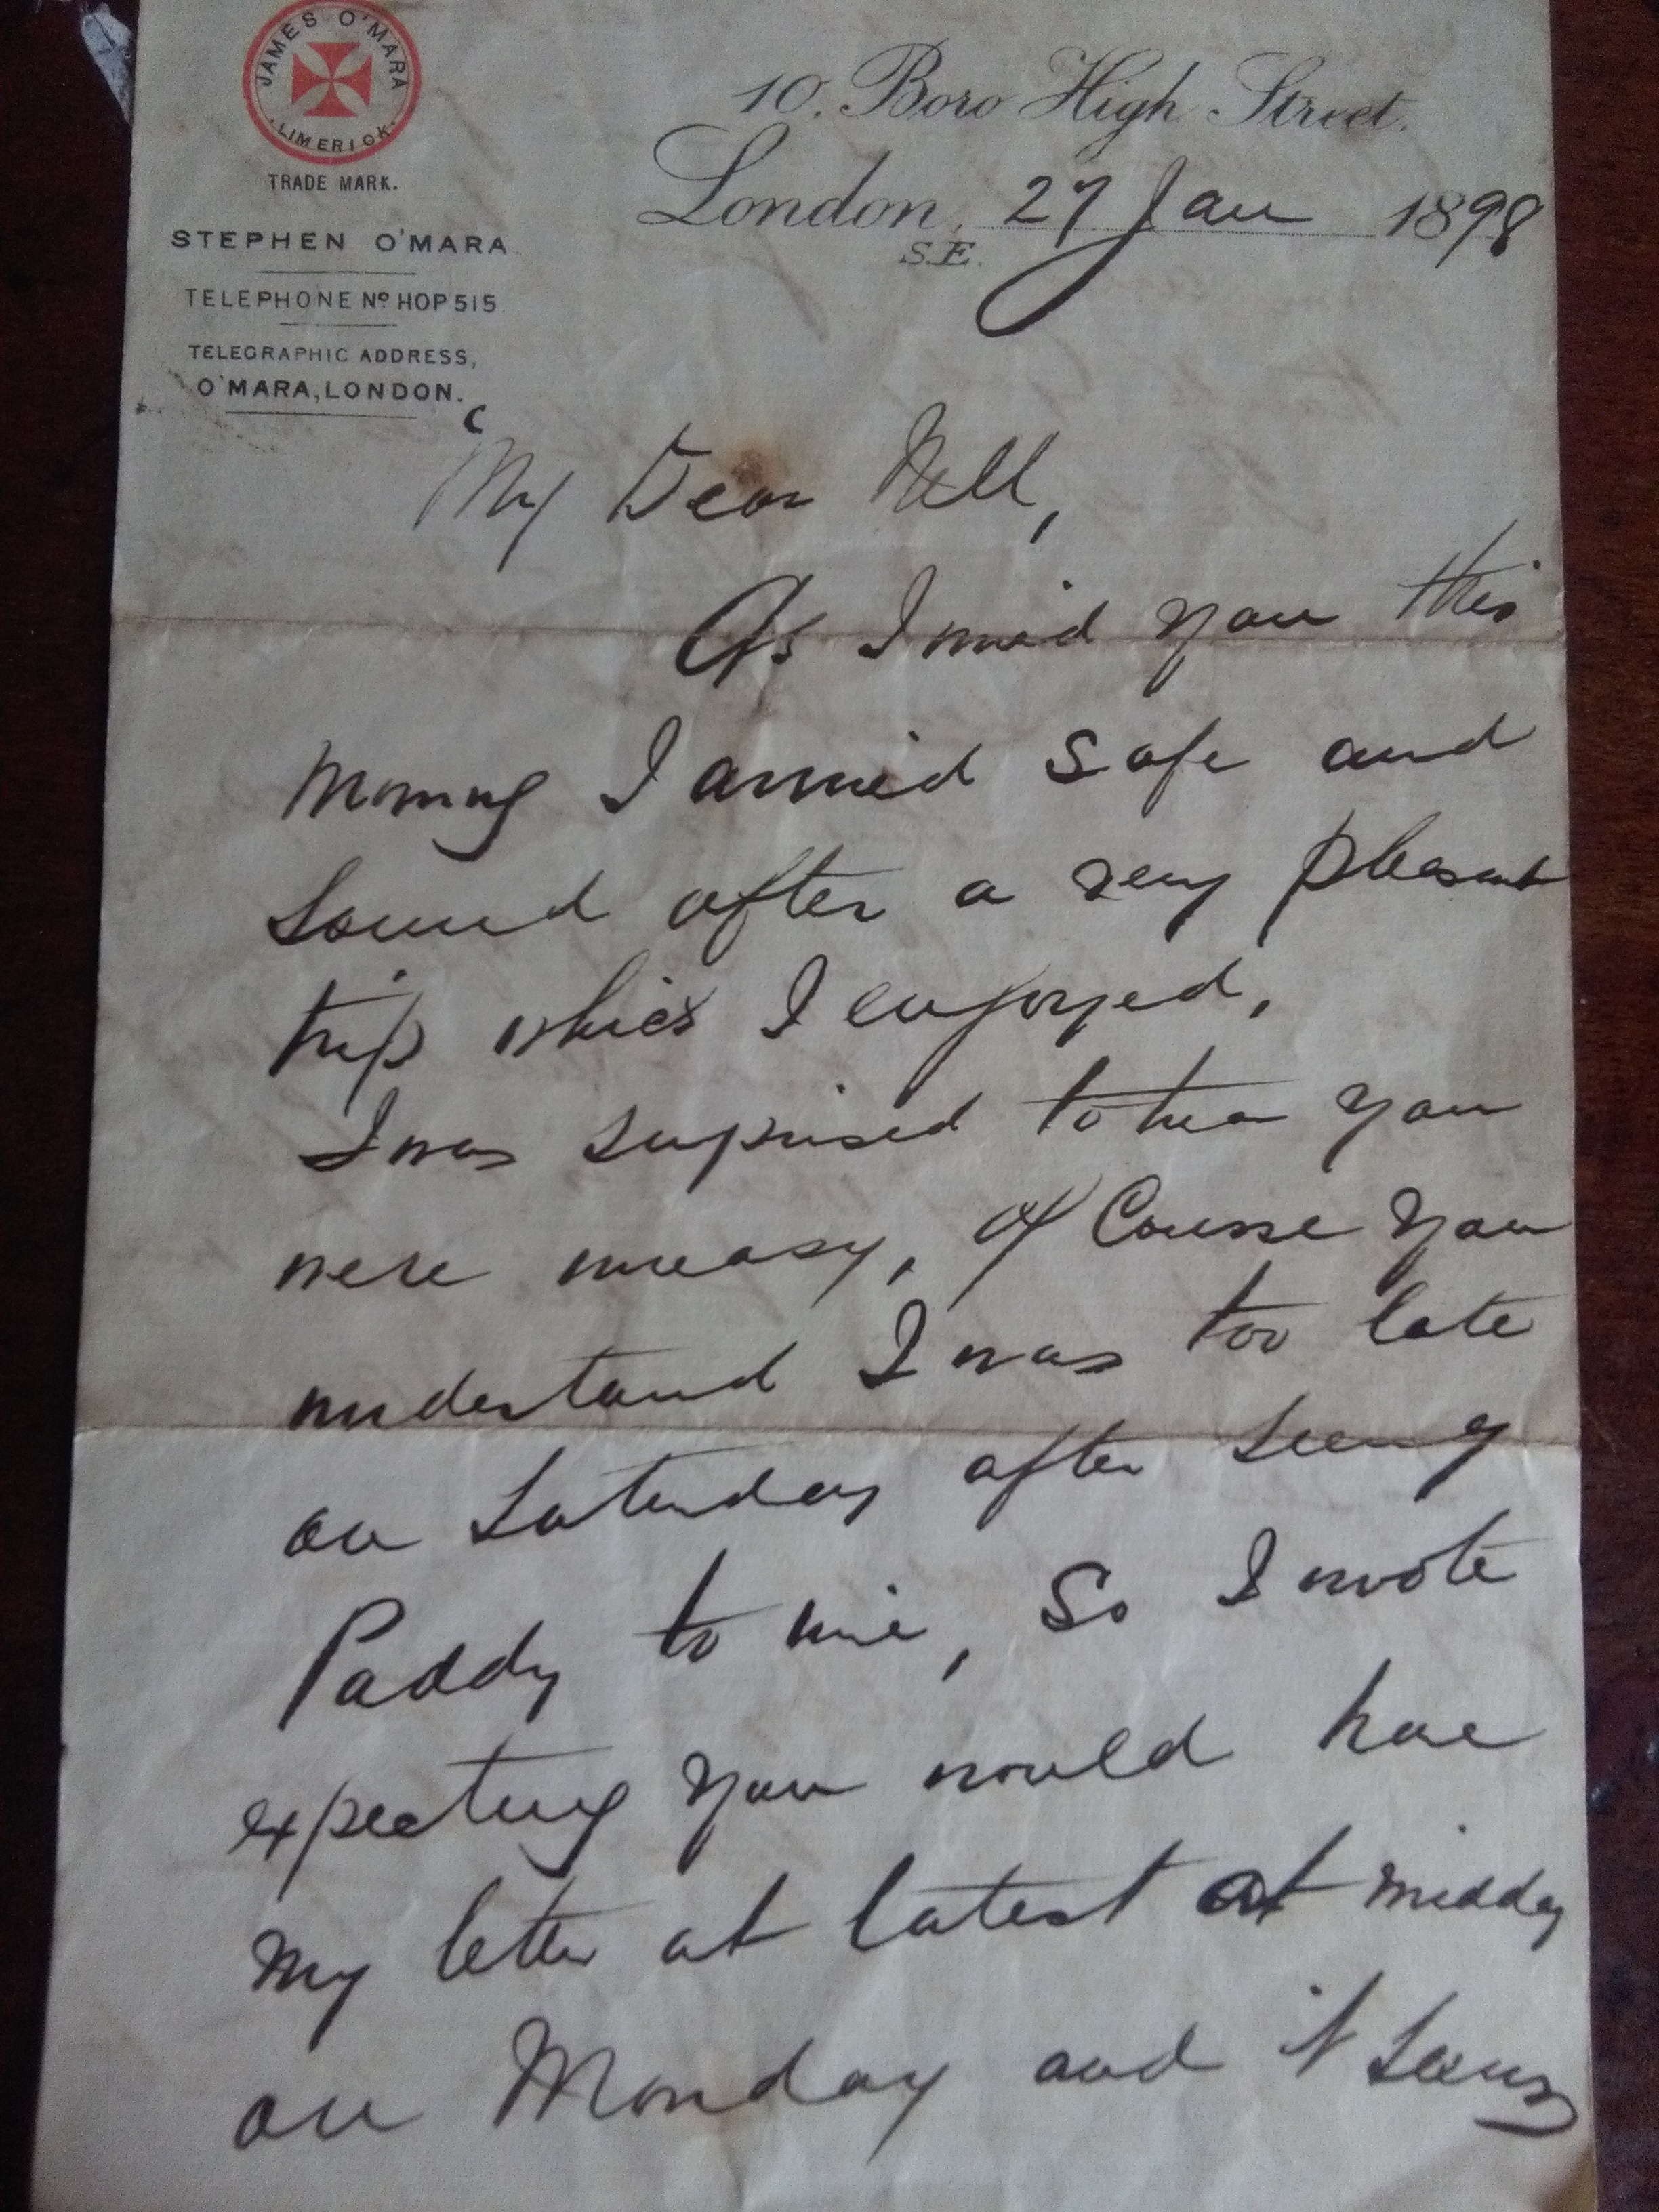 JAMES O'MARA
LIMERICK
TRADE MARK.
STEPHEN O'MARA
TELEPHONE Nº HOP 515
TELEGRAPHIC ADDRESS,
O'MARA, LONDON.
10. Boro High Street.
London, 27 Jan 1898
S.E.
My Dear Nell,
As I wired you this
morning I arrived safe and
sound after a very pleasant
trip which I enjoyed,
I was surprised to hear you
were uneasy, of Course you
understand I was too late
on Saturday after seeing
Paddy to wire, So I wrote
expecting you would have
my letter at latest at midday
on Monday and it seems